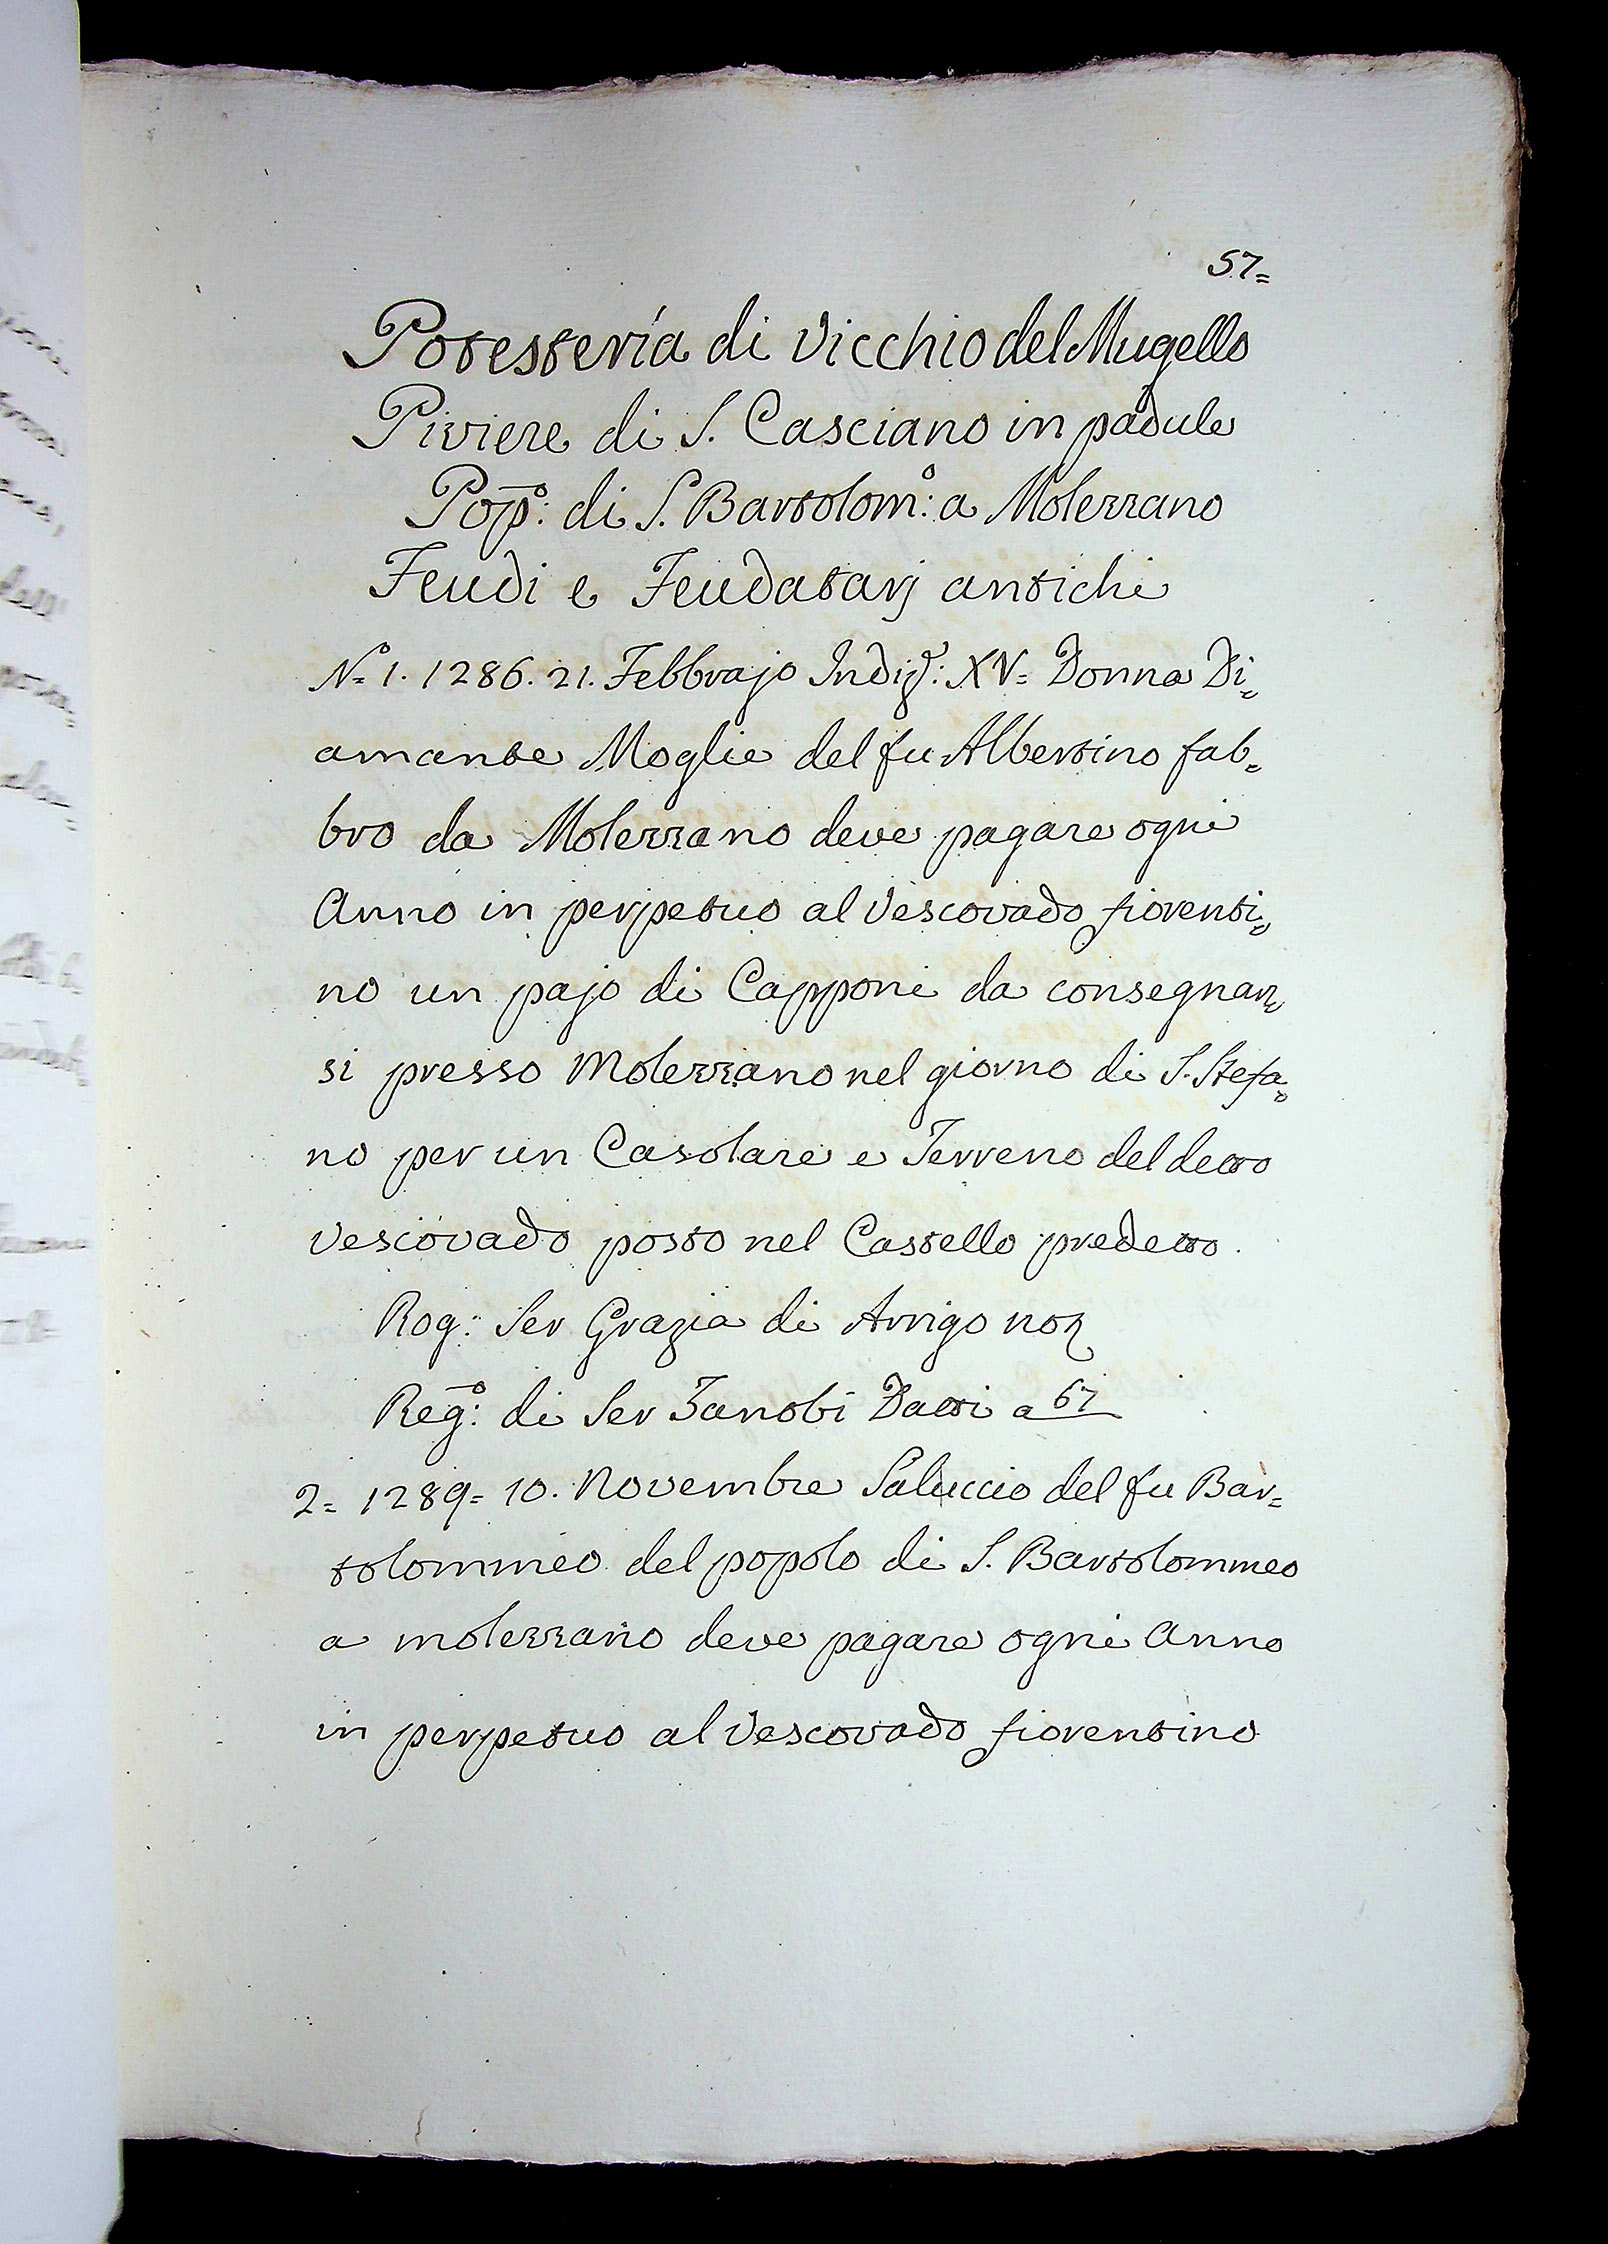 57=
Potestería di Vicchio del Mugello
Piviere di S. Casciano in padule
Pop̄º: di S. Bartolom:º a Molezzano
Feudi e Feudatarj antichi
Nº= 1. 1286. 21. Febbrajo Indiz:º XV= Donna Di=
amante Moglie del fu Albertino fab=
bro da Molezzano deve pagare ogni
Anno in perpetuo al Vescovado fiorenti=
no un pajo di Capponi da consegnar=
si presso Molezzano nel giorno di S. Stefa=
no per un Casolare e Terreno del detto
Vescovado posto nel Castello predetto.
Rog: Ser Grazia di Arrigo not
Reḡº: di Ser Zanobi Datti a 67
2= 1289= 10. Novembre Saluccio del fu Bar=
tolommeo del popolo di S. Bartolommeo
a molezzano deve pagare ogni Anno
in perpetuo al Vescovado fiorentino